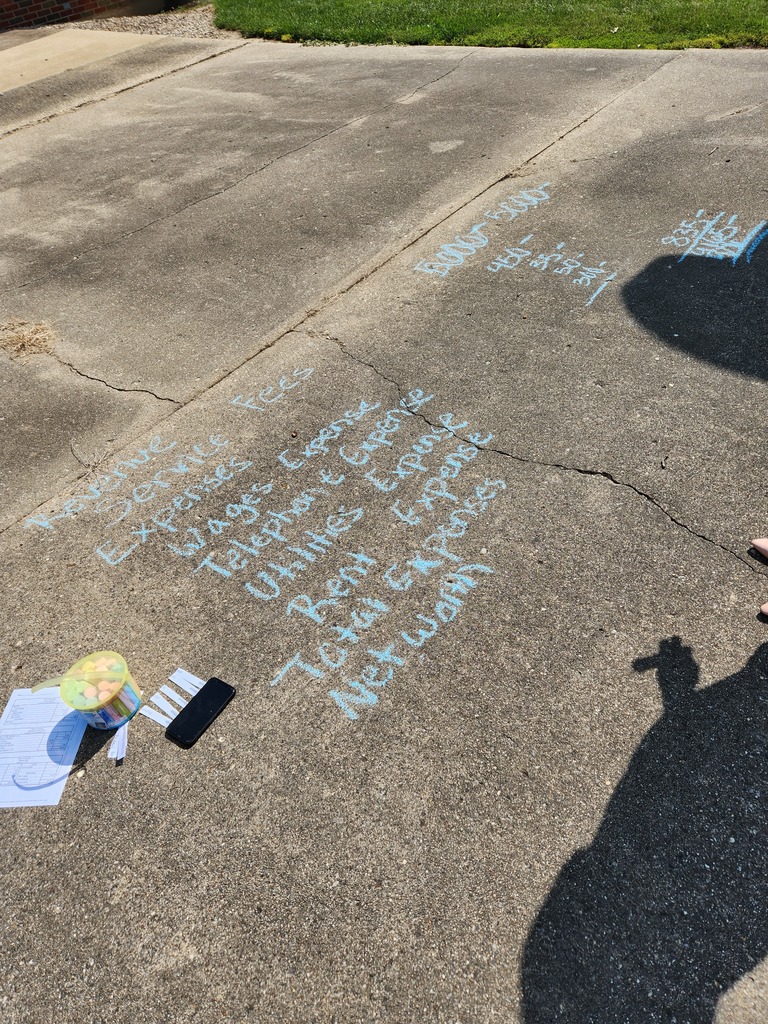 Revenue
Service Fees
Expenses
Wages Expense
Telephone Expense
Utilities Expense
Rent Expense
Total Expenses
Net Worth
5000-
400-
35-
50-
825-